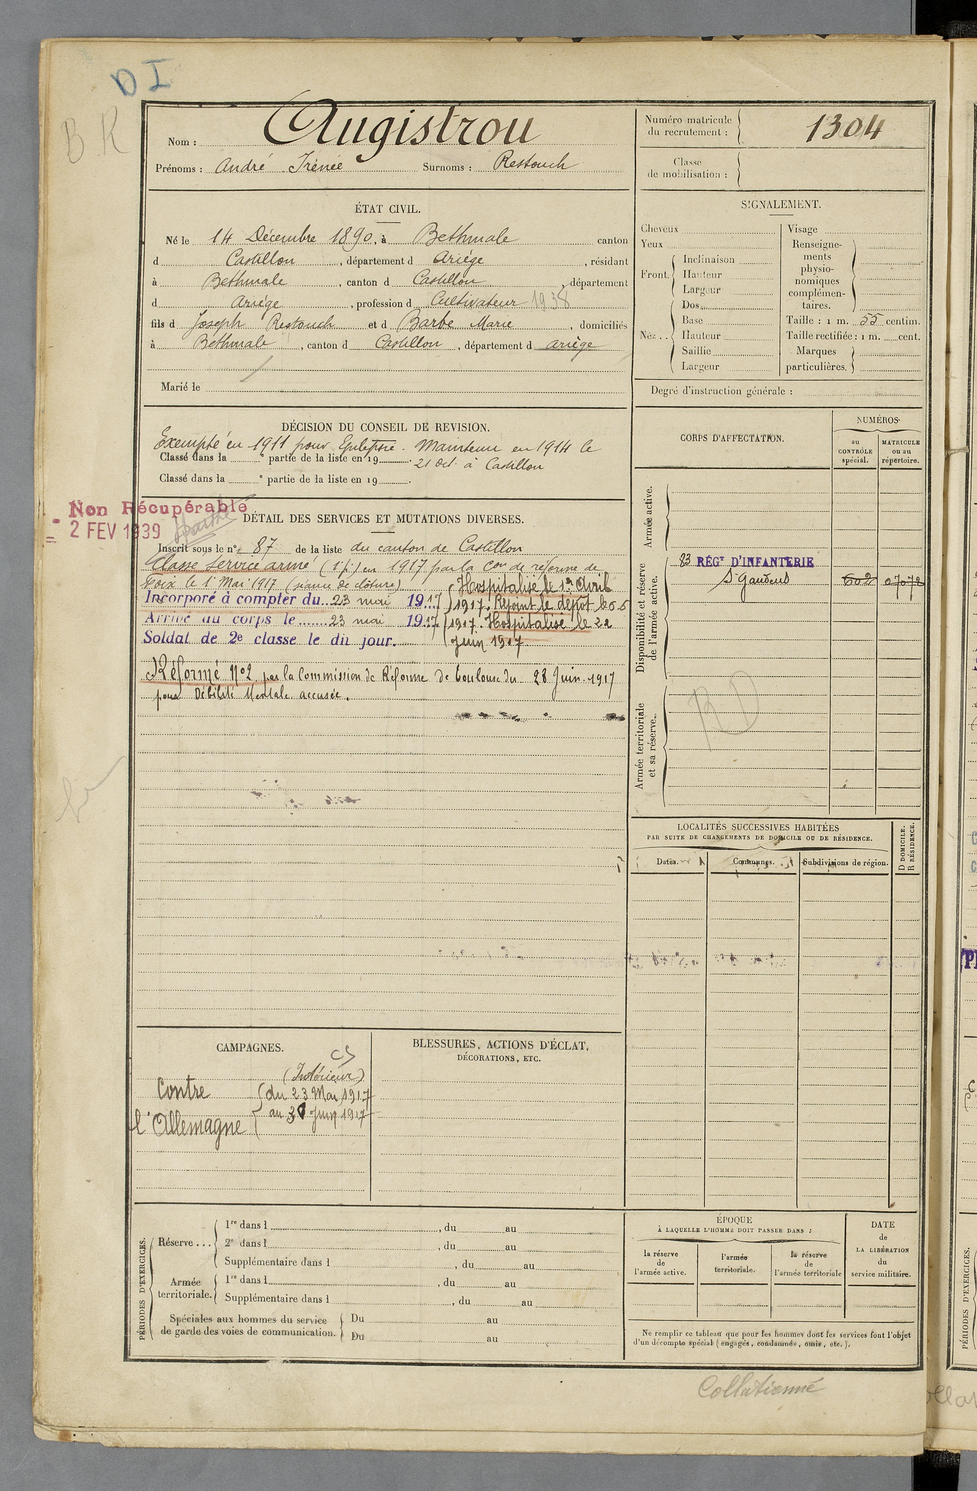 DI
BR
Nom : Augistrou
Prénoms : André Irénée Surnoms : Restouch
Numéro matricule du recrutement : 1304
Classe de mobilisation :
ÉTAT CIVIL.
Né le 14 Décembre 1890, à Bethmale canton
d Castillon, département d Ariège, résidant
à Bethmale, canton d Castillon, département
d Ariège, profession d Cultivateur 1938
fils d Joseph Restouch et d Barbe Marie, domiciliés
à Bethmale, canton d Castillon, département d Ariège
Marié le
SIGNALEMENT.
Cheveux
Yeux
Front.
Inclinaison
Hauteur
Largeur
Nez..
Dos
Base
Hauteur
Saillie
Largeur
Visage
Renseigne-
ments
physio-
nomiques
complémen-
taires.
Taille : 1 m. 55 centim.
Taille rectifiée : 1 m. cent.
Marques
particulières.
Degré d'instruction générale :
DÉCISION DU CONSEIL DE REVISION.
Exempté en 1911 pour Epilepsie. Maintenu en 1914 le
Classé dans la e partie de la liste en 19 . 21 Oct. à Castillon
Classé dans la e partie de la liste en 19 .
Non Récupérable
2 FEV 1939
DÉTAIL DES SERVICES ET MUTATIONS DIVERSES.
Inscrit sous le n° 87 de la liste du canton de Castillon
Classé service armé (1 p.) en 1917 par la Con de réforme de
Foix le 1 Mai 1917 (séance de clôture)
Incorporé à compter du 23 mai 1917
Arrivé au corps le 23 mai 1917
Soldat de 2e classe le dit jour.
Hospitalisé le 1er Avril
1917. Rejoint le dépôt le 5
1917. Hospitalisé le 22
Juin 1917
Réformé N°2 par la Commission de Réforme de Toulouse du 28 Juin 1917
pour Débilité Mentale accusée.
CORPS D'AFFECTATION.
NUMÉROS
au CONTRÔLE spécial.
MATRICULE ou au répertoire.
Armée active.
Disponibilité et réserve de l'armée active.
83 RÉGT D'INFANTERIE
St Gaudens
Armée territoriale et sa réserve.
RD
LOCALITÉS SUCCESSIVES HABITÉES
PAR SUITE DE CHANGEMENTS DE DOMICILE OU DE RÉSIDENCE.
Dates.
Communes.
Subdivisions de région.
D DOMICILE. R RÉSIDENCE.
CAMPAGNES.
CS
(Intérieur)
Contre
l'Allemagne
du 23 Mai 1917
au 30 Juin 1917
BLESSURES, ACTIONS D'ÉCLAT,
DÉCORATIONS, ETC.
PÉRIODES D'EXERCICES.
Réserve...
1re dans l , du au
2e dans l , du au
Supplémentaire dans l , du au
Armée territoriale.
1re dans l , du au
Supplémentaire dans l , du au
Spéciales aux hommes du service
de garde des voies de communication.
Du au
Du au
ÉPOQUE
À LAQUELLE L'HOMME DOIT PASSER DANS :
la réserve de l'armée active.
l'armée territoriale.
la réserve de l'armée territoriale
DATE de LA LIBÉRATION du service militaire.
Ne remplir ce tableau que pour les hommes dont les services font l'objet
d'un décompte spécial (engagés, condamnés, omis, etc.).
Collationné